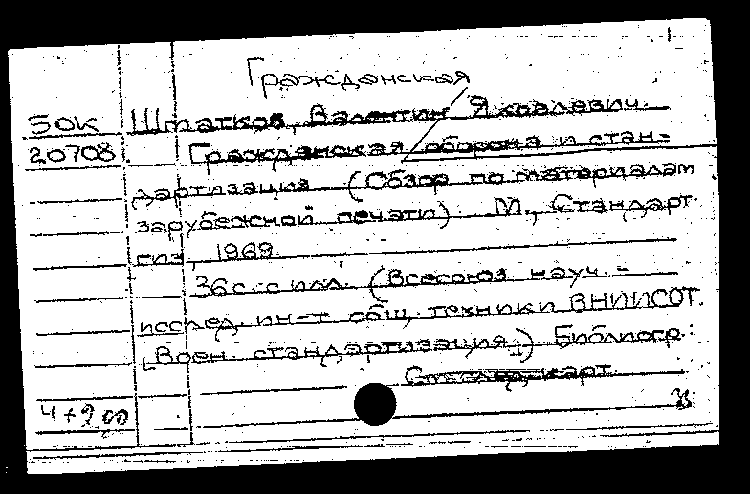 Гражданская
50К Штатков, Валентин Яковлевич.
20708. Гражданская оборона и стан-
дартизация (Обзор по материалам
зарубежной печати) М., Стандарт-
гиз, 1969.
36с. с илл. (Всесоюз науч.-
исслед. ин-т общ. техники ВНИИСОТ.
Воен. стандартизация.) Библиогр.:
См след. карт.